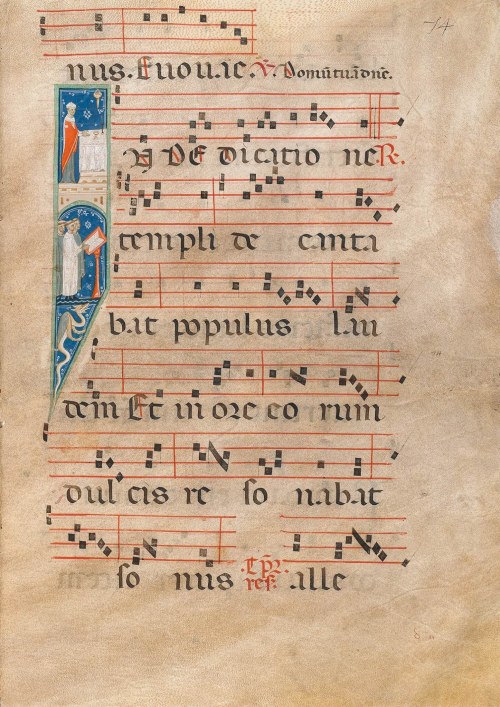 74
nus. Euouae. V. Domum tuā dn̄e.
IN DEdicatio ne R.
templi de canta
bat populus lau
dem Et in ore eo rum
dulcis re so nabat
so nus alle